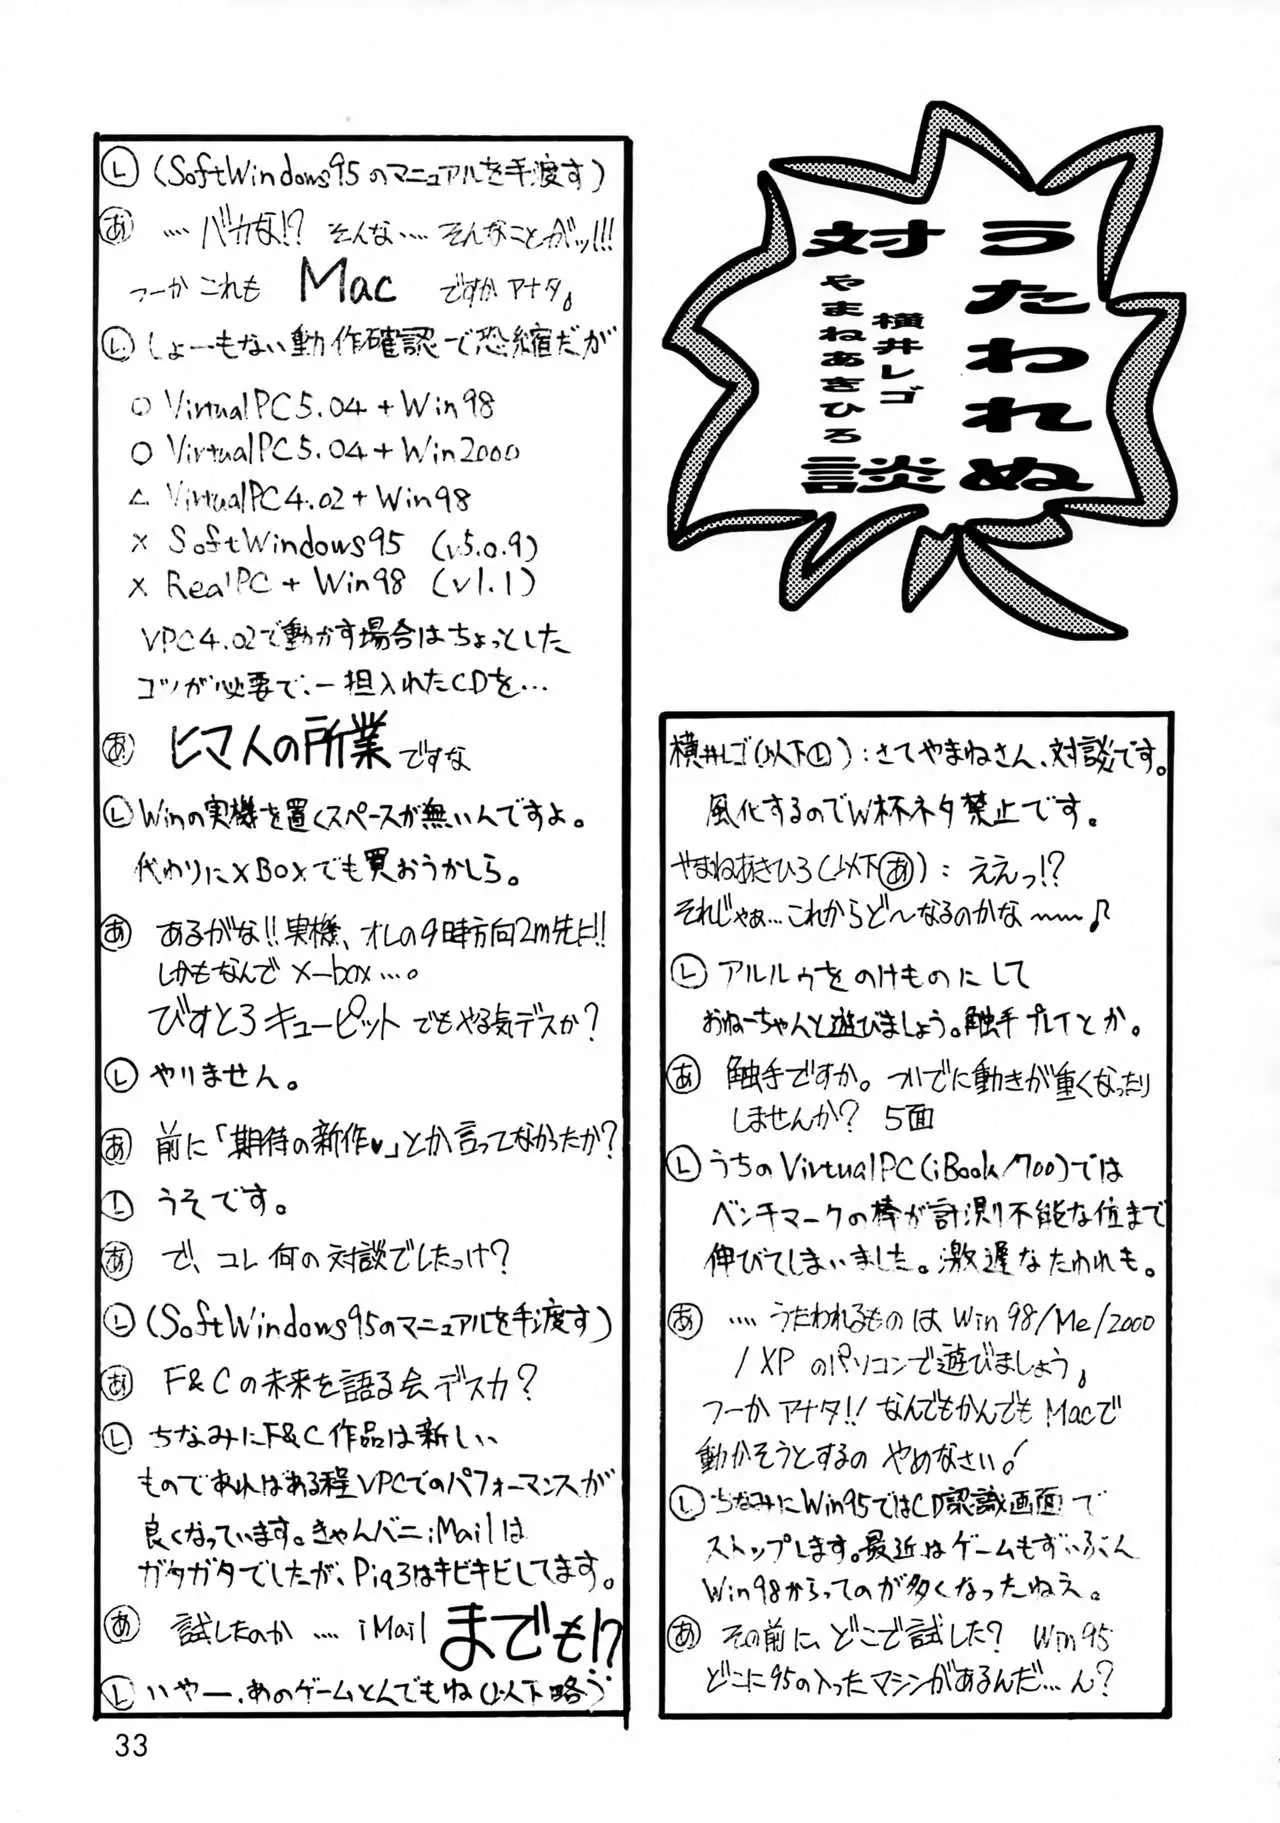 うたわれぬ
対談
横井レゴ
やまねあきひろ
横井レゴ(以下Ⓛ):さてやまねさん、対談です。
風化するのでW杯ネタ禁止です。
やまねあきひろ(以下あ):ええっ!?
それじゃぁ…これからど〜なるのかな〜〜♪
Ⓛ アルルゥをのけものにして
おねーちゃんと遊びましょう。触手プレイとか。
あ 触手ですか。ついでに動きが重くなったり
しませんか? 5面
Ⓛ うちのVirtualPC(iBook/700)では
ベンチマークの棒が計測不能な位まで
伸びてしまいました。激遅なたわれも。
あ ‥‥うたわれるものは Win 98/Me/2000
/XP のパソコンで遊びましょう。
つーか アナタ!! なんでもかんでもMacで
動かそうとするの やめなさい!
Ⓛ ちなみにWin95ではCD認識画面で
ストップします。最近はゲームもずいぶん
Win98からってのが多くなったねえ。
あ その前に、どこで試した? Win95
どこに95の入ったマシンがあるんだ…ん?
Ⓛ (SoftWindows95のマニュアルを手渡す)
あ ‥‥バカな!? そんな‥‥そんなことがッ!!!
つーか これも Mac ですか アナタ。
Ⓛ しょーもない動作確認で恐縮だが
○ VirtualPC5.04+Win98
○ VirtualPC5.04+Win2000
△ VirtualPC4.02+Win98
× SoftWindows95 (v5.0.9)
× RealPC+Win98 (v1.1)
VPC4.02で動かす場合はちょっとした
コツが必要で、一担入れたCDを…
あ ヒマ人の所業ですな
Ⓛ Winの実機を置くスペースが無いんですよ。
代わりにXBoxでも買おうかしら。
あ あるがな!!実機、オレの9時方向2m先に!!
しかもなんで X-box…。
びすとろキューピット でもやる気デスか?
Ⓛ やりません。
あ 前に「期待の新作♥」とか言ってなかったか?
Ⓛ うそです。
あ で、コレ何の対談でしたっけ?
Ⓛ (SoftWindows95のマニュアルを手渡す)
あ F&Cの未来を語る会デスカ?
Ⓛ ちなみにF&C作品は新しい
ものであればある程VPCでのパフォーマンスが
良くなっています。きゃんバニiMailは
ガタガタでしたが、Pia3はキビキビしてます。
あ 試したのか ‥‥iMail までも!?
Ⓛ いやー、あのゲームとんでもね(以下略)
33